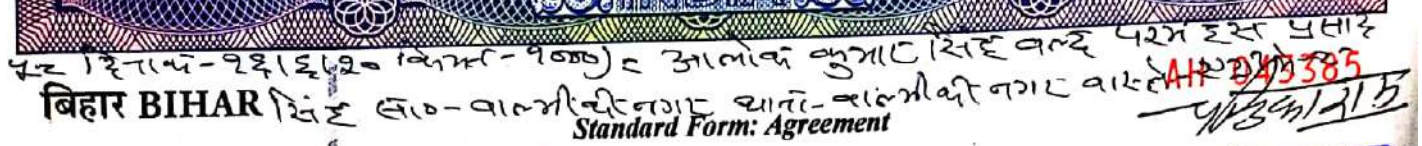 दिनांक-१६/६/२० किमत-१०००) = आलोक कुमार सिंह वल्द परमहंस प्रसाद
बिहार BIHAR सिंह सा०-वाल्मीकीनगर थाना-वाल्मीकीनगर वास्ते AH 043385
Standard Form: Agreement